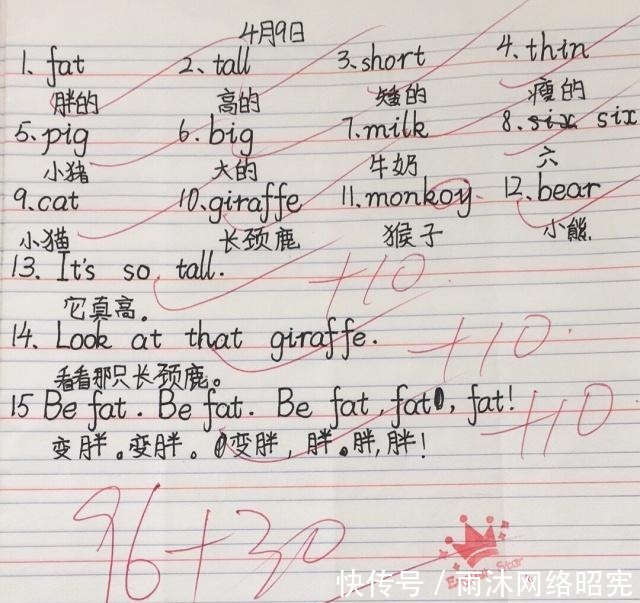 4月9日
1. fat 2、tall 3、short 4. thin
胖的 高的 矮的 瘦的
5. pig 6. big 7. milk 8. six six
小猪 大的 牛奶 六
9. cat 10. giraffe 11. monkoy. 12. bear
小猫 长颈鹿 猴子 小熊
13. It's so tall.
它真高。
14. Look at that giraffe.
看看那只长颈鹿。
15 Be fat. Be fat. Be fat, fat, fat!
变胖。变胖。变胖,胖。胖,胖!
+10
+10
+10
96+30
快传号/雨沐网络昭宪